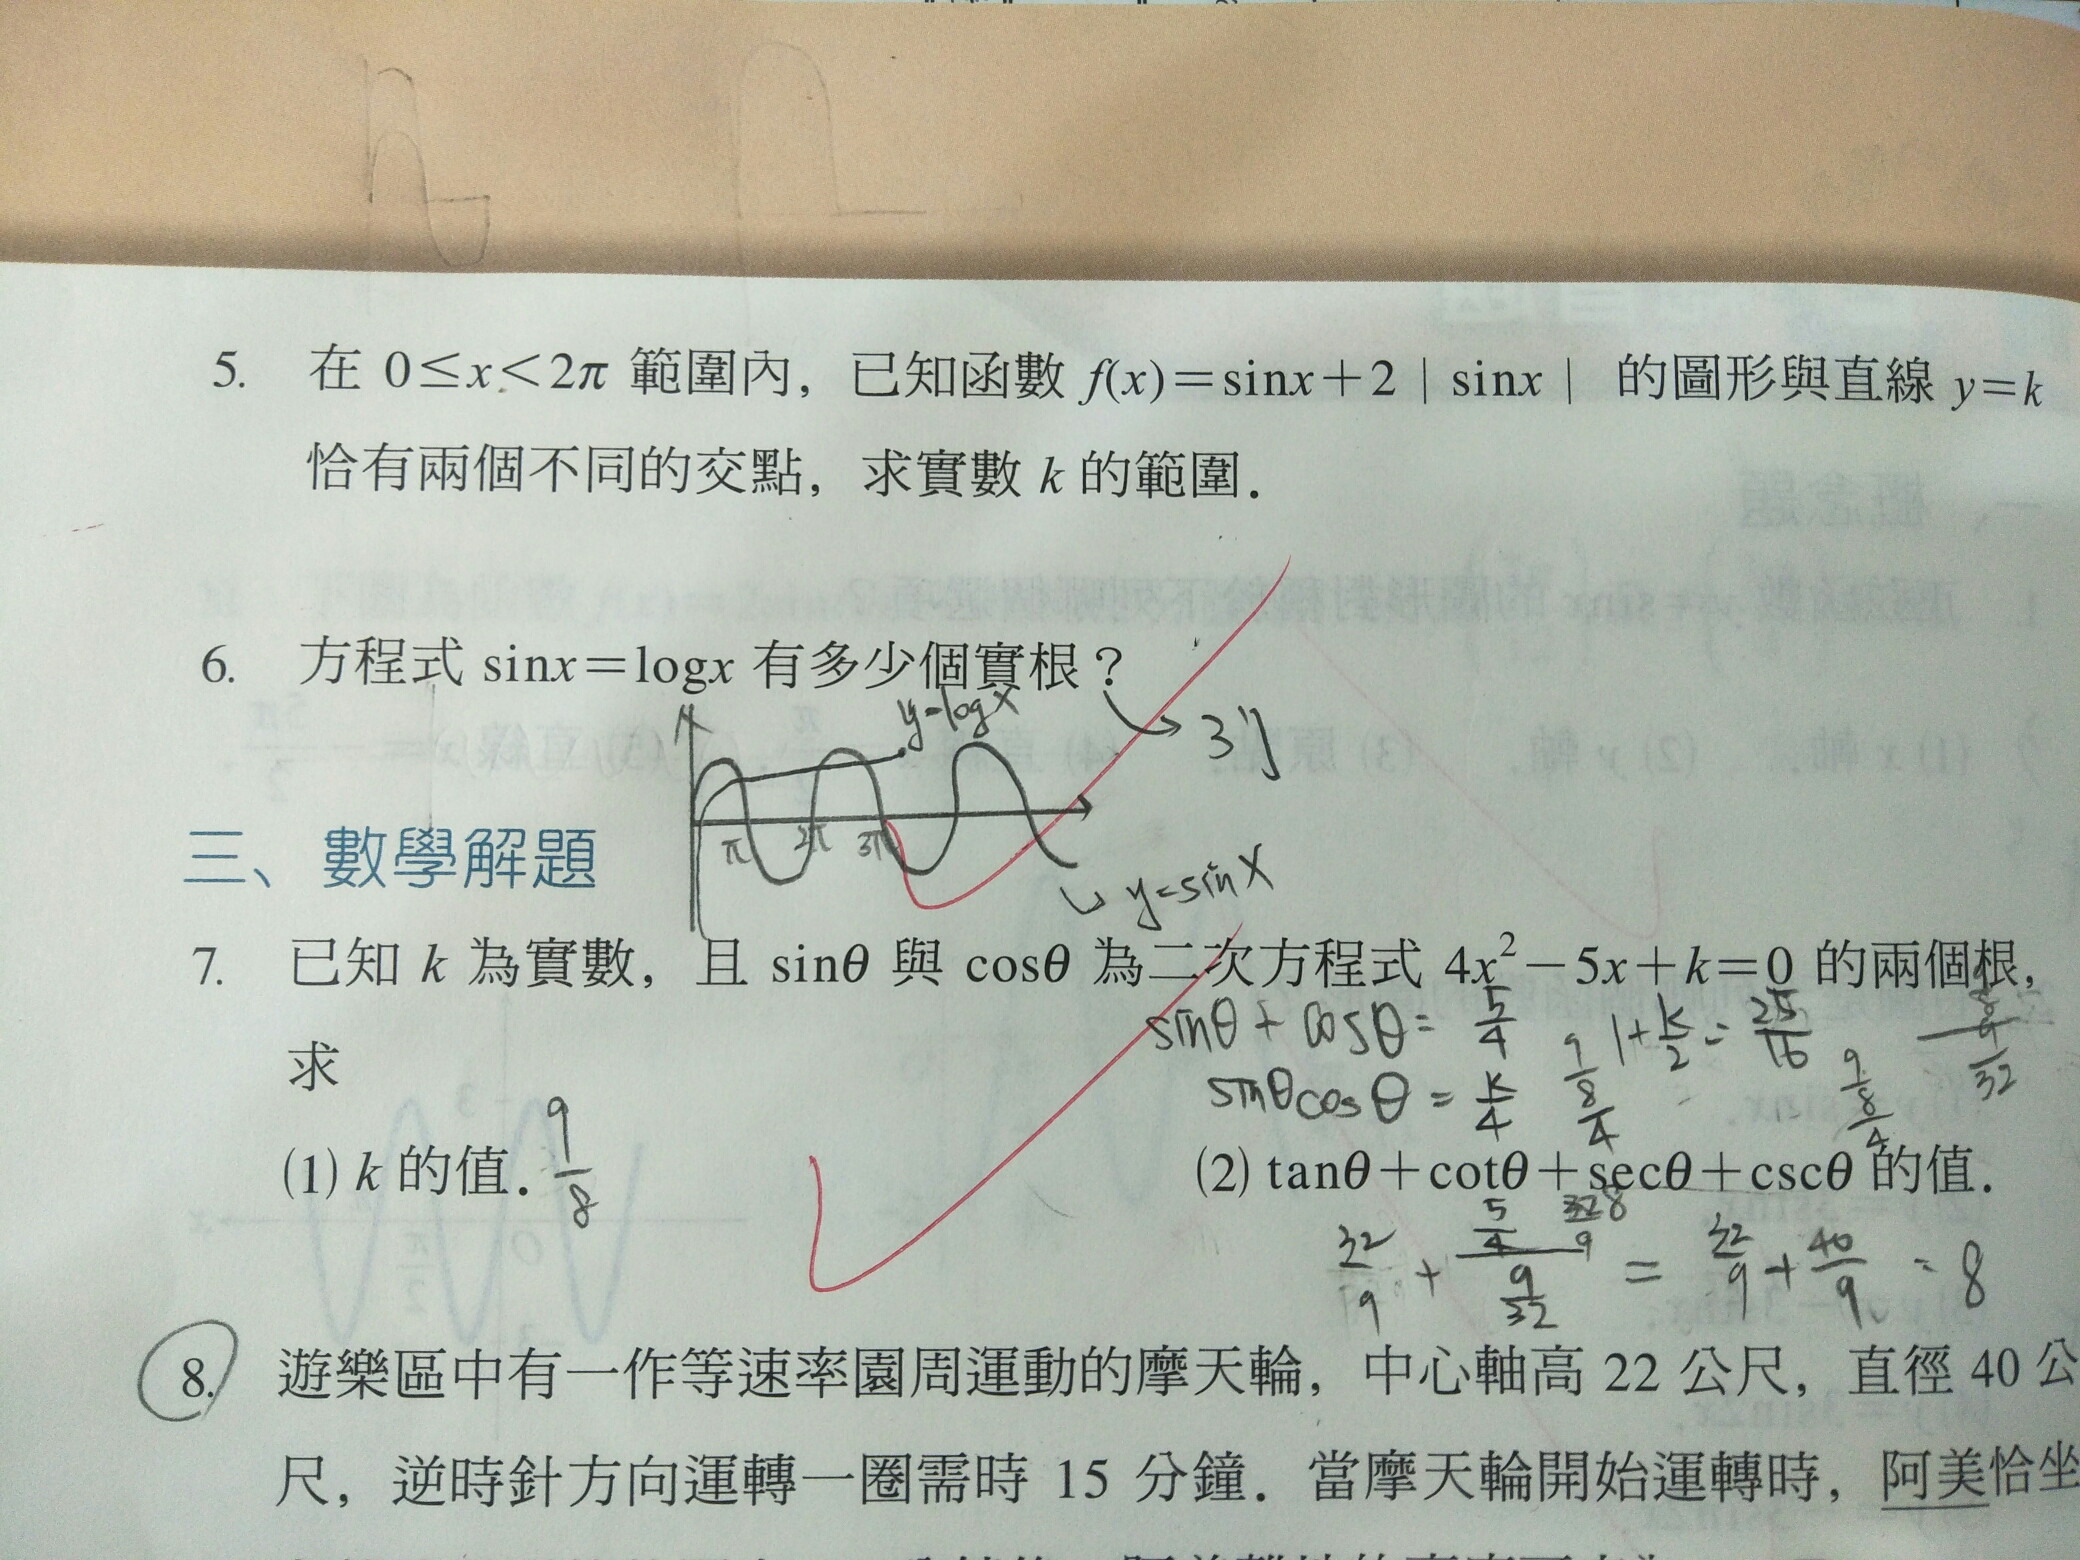 5. 在 0≤x<2π 範圍內，已知函數 f(x)=sinx+2 | sinx | 的圖形與直線 y=k
恰有兩個不同的交點，求實數 k 的範圍．
6. 方程式 sinx=logx 有多少個實根？
y=logx
3個
π 2π 3π
y=sinx
三、數學解題
7. 已知 k 為實數，且 sinθ 與 cosθ 為二次方程式 4x²−5x+k=0 的兩個根，
sinθ + cosθ = 5/4
1 + k/2 = 25/16
求
sinθcosθ = k/4
(1) k 的值． 9/8
(2) tanθ+cotθ+secθ+cscθ 的值．
32/9 + (5/4)/(9/32) = 32/9 + 40/9 = 8
8. 遊樂區中有一作等速率圓周運動的摩天輪，中心軸高 22 公尺，直徑 40 公
尺，逆時針方向運轉一圈需時 15 分鐘．當摩天輪開始運轉時，阿美恰坐